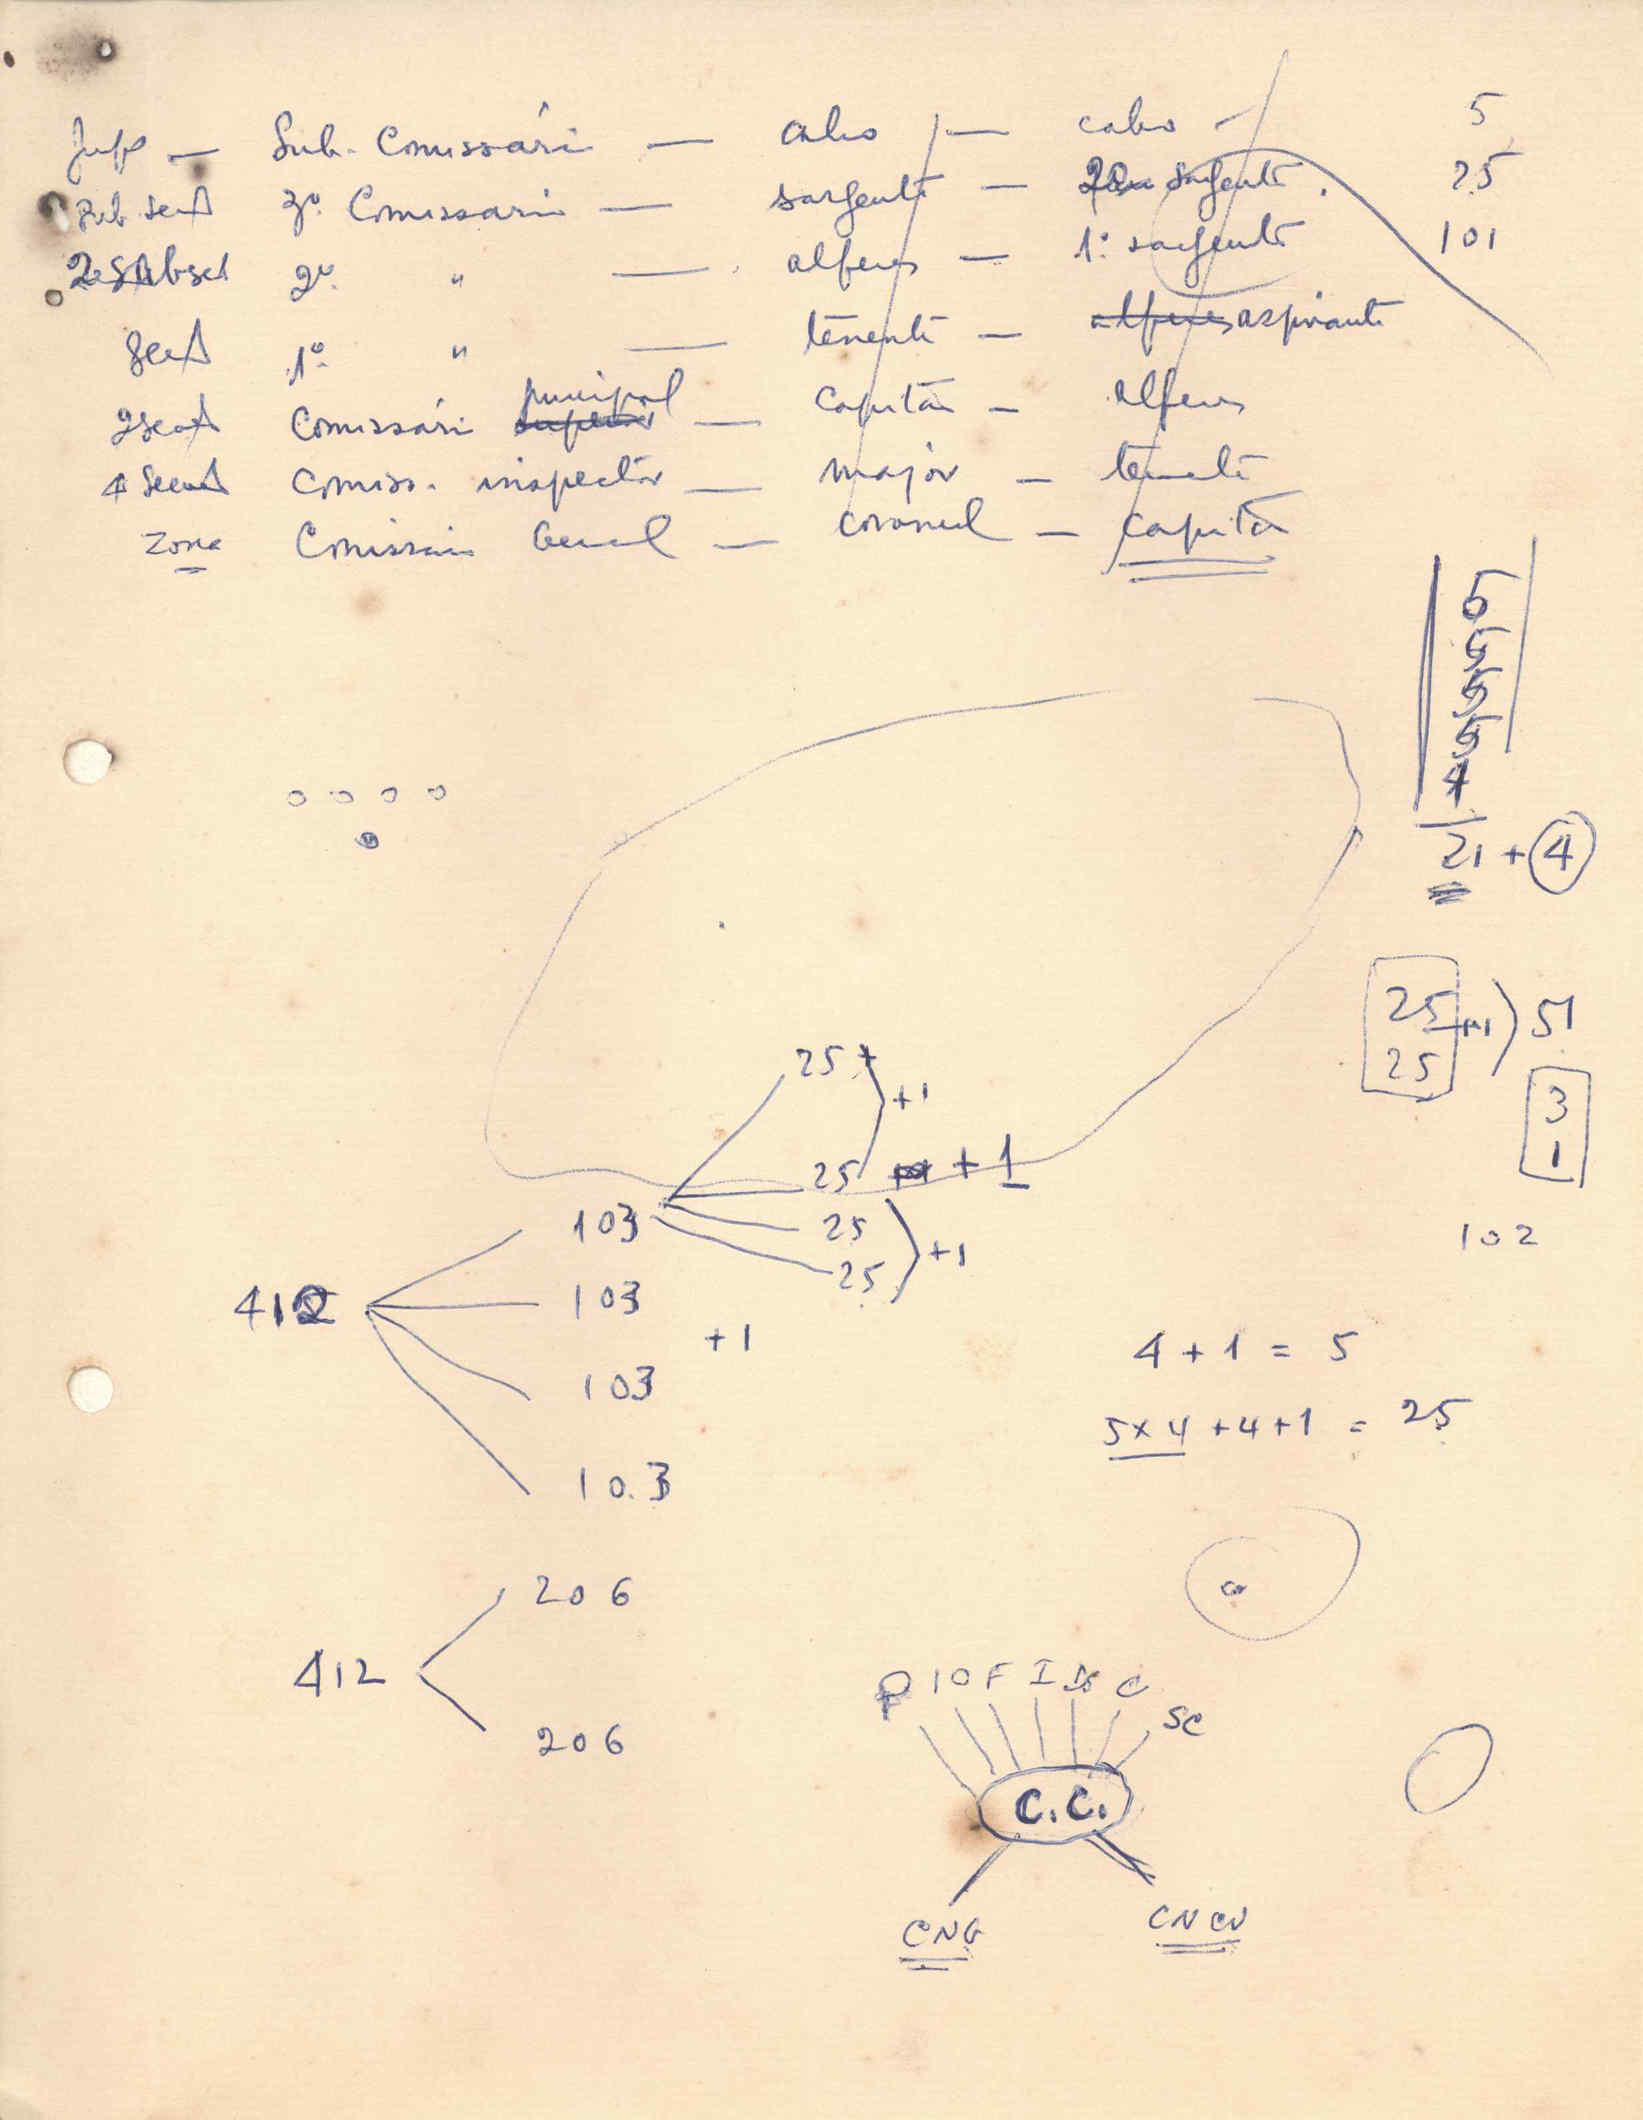 Sub-Comissário — cabo — cabo - 5
Sub sec 3º Comissario — sargento — 2º sargento. 25
2 Subsec 2º " — alferes — 1º sargento 101
Sec 1º " — tenente — alferes aspirante
2 sec Comissário superior principal — capitão — alferes
4 sec Comiss. inspector — major — tenente
Zona Comissário Geral — coronel — capitão
5
5
5
5
21 + 4
25 +1 ) 51
25
3
1
102
25
+1
25 + 1
25
25 +1
412 103
103
103
103
+1
4 + 1 = 5
5x4 + 4 + 1 = 25
412 206
206
P I O F I C SC
C.C.
CNG CNCV